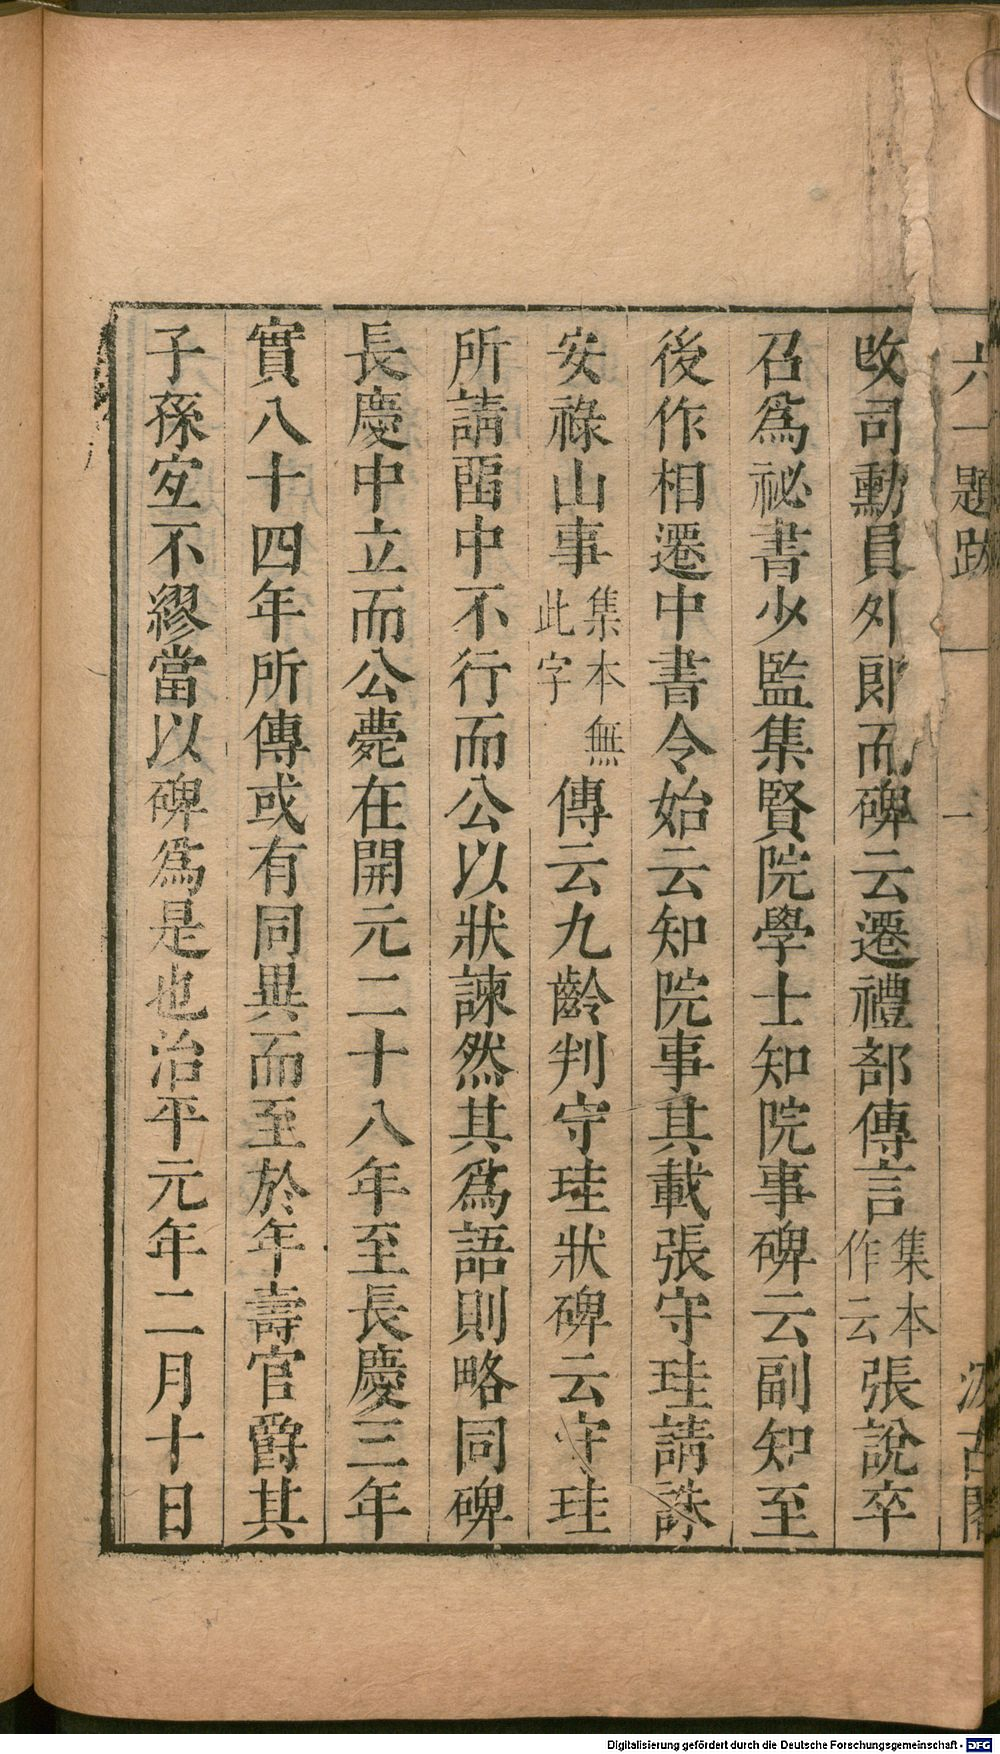 六一題跋
一
汲古閣
改司勳員外郎而碑云遷禮部傳言集本作云張說卒
召爲祕書少監集賢院學士知院事碑云副知至
後作相遷中書令始云知院事其載張守珪請誅
安祿山事集本無此字傳云九齡判守珪狀碑云守珪
所請畱中不行而公以狀諫然其爲語則略同碑
長慶中立而公薨在開元二十八年至長慶三年
實八十四年所傳或有同異而至於年壽官爵其
子孫宐不繆當以碑爲是也治平元年二月十日
Digitalisierung gefördert durch die Deutsche Forschungsgemeinschaft - DFG